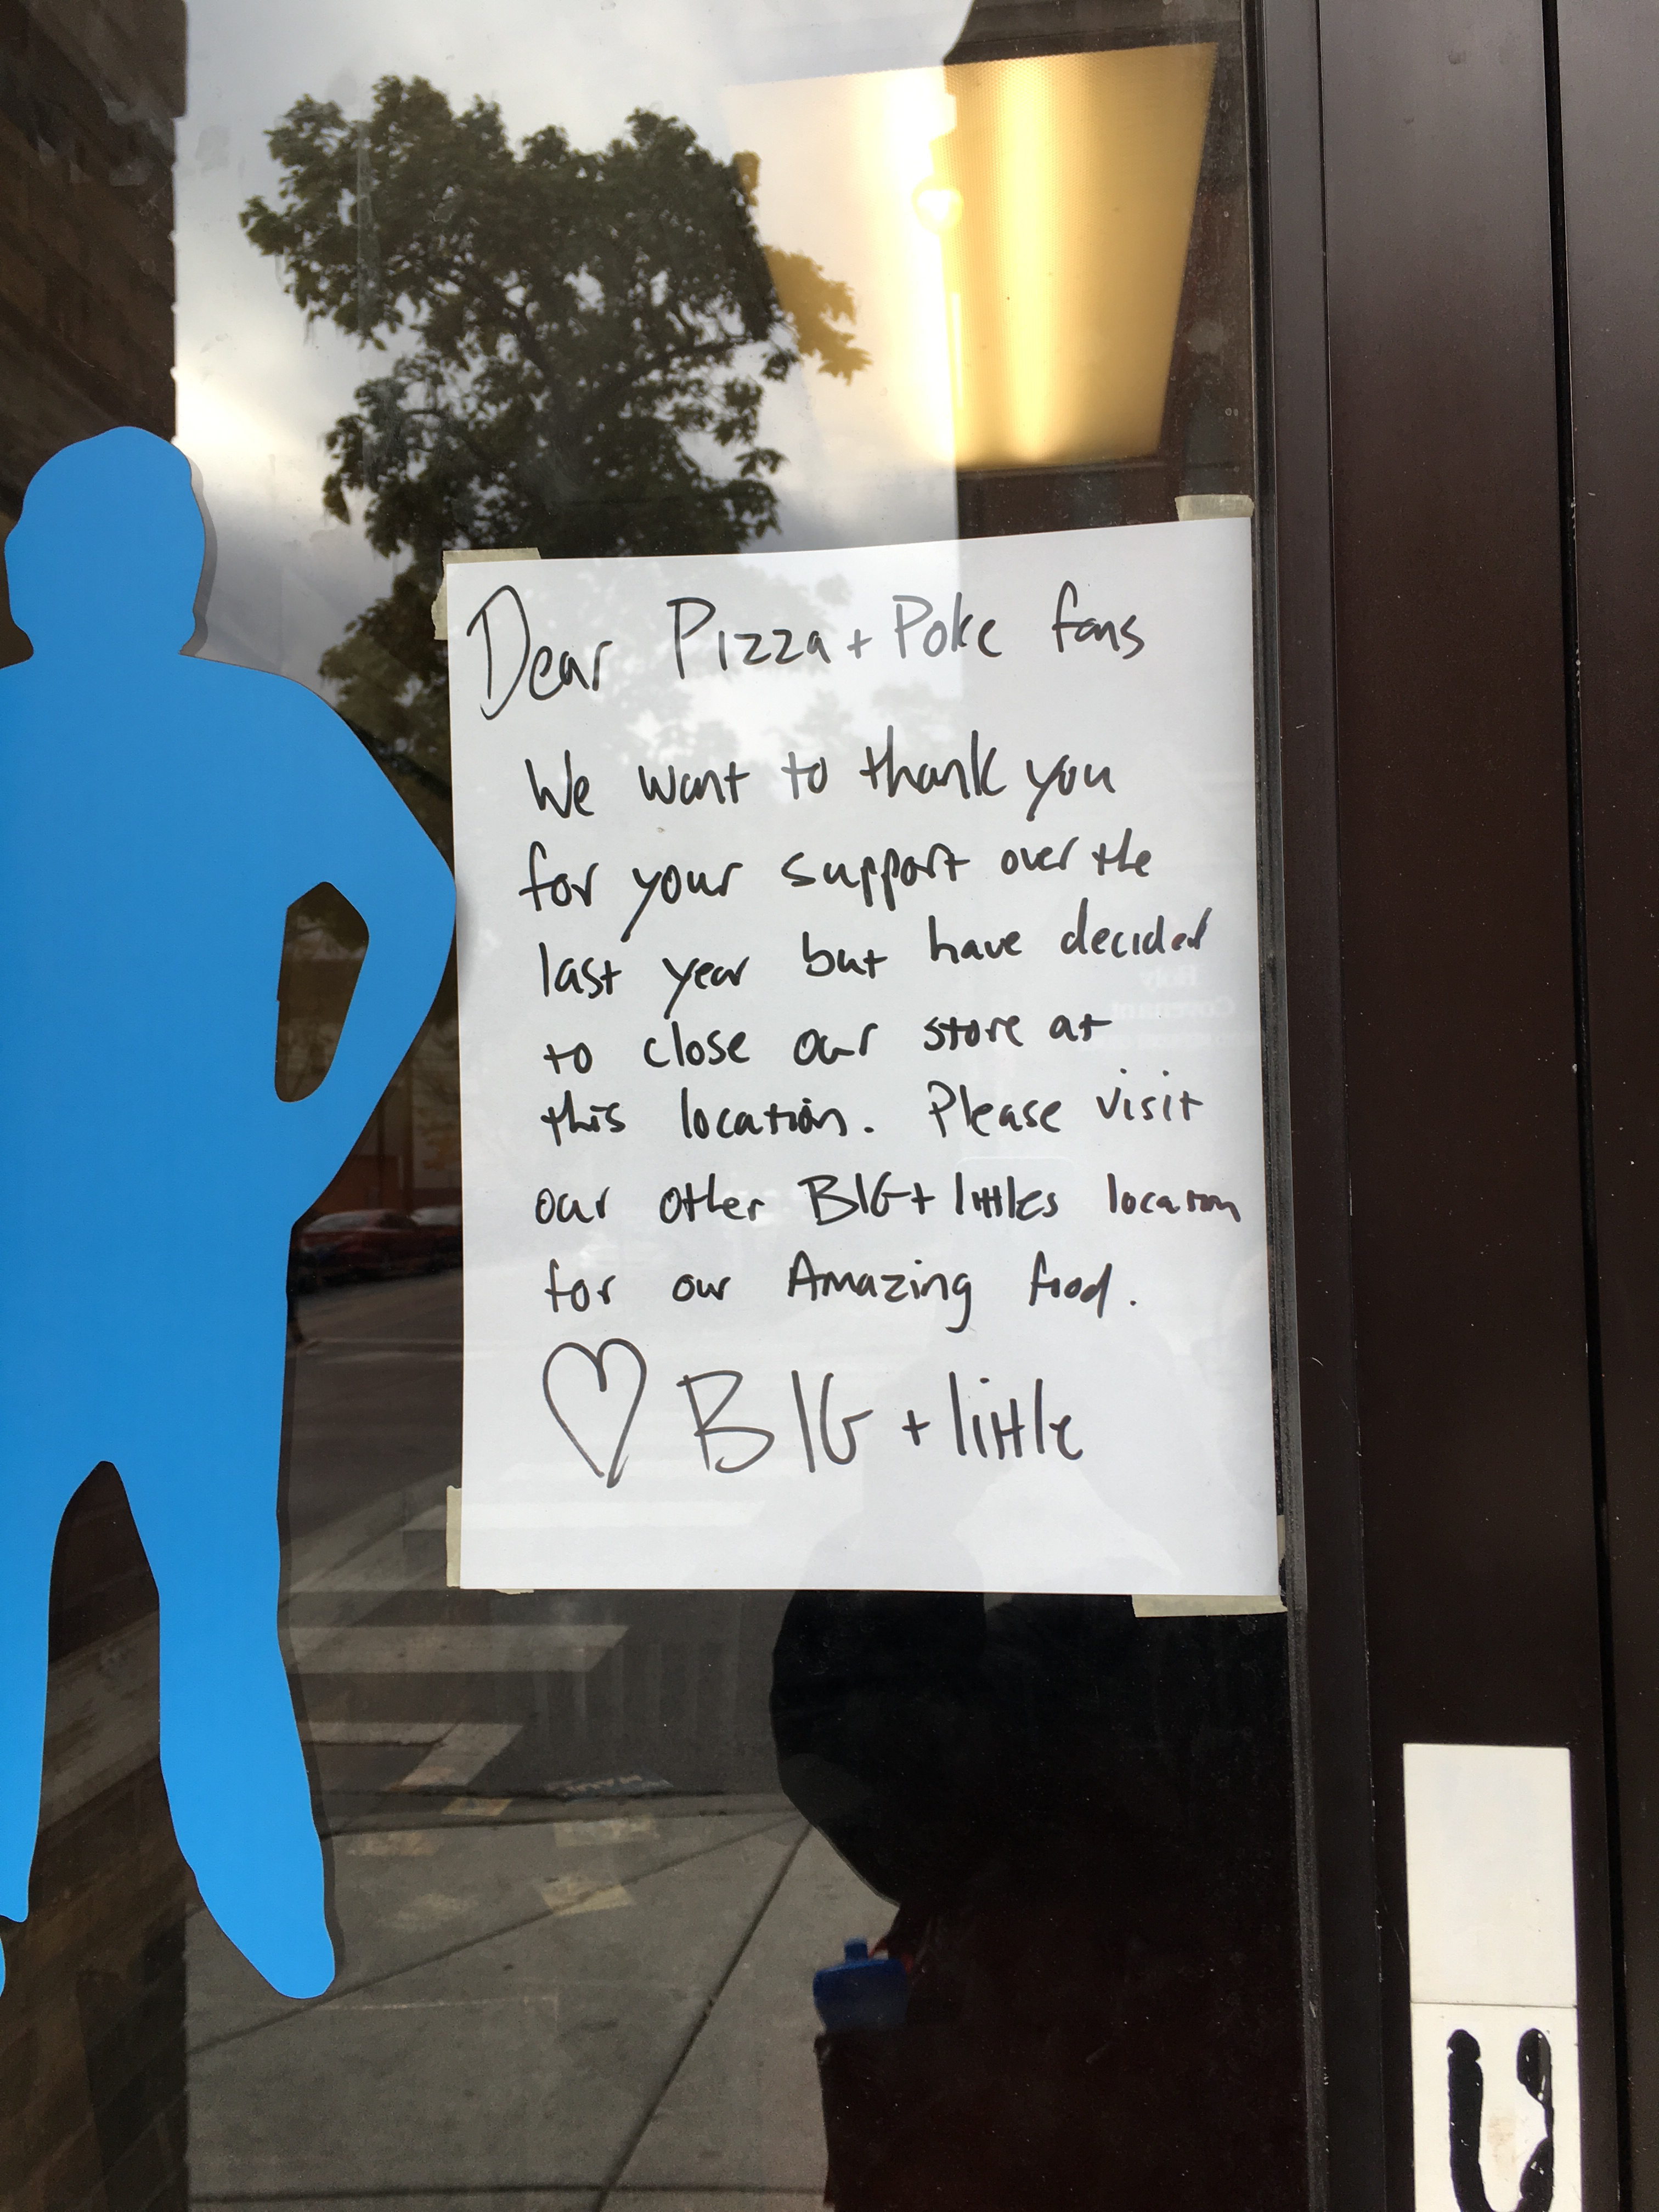 Dear Pizza + Poke fans
We want to thank you
for your support over the
last year but have decided
to close our store at
this location. Please visit
our other BIG + littles location
for our Amazing food.
♡ BIG + little
Holy
Covenant
U